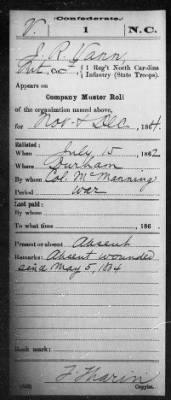 Confederate
V. 1 N.C.
J. R. Vann
Pvt, Co. 1 Reg't North Carolina
Infantry (State Troops).
Appears on
Company Muster Roll
of the organization named above,
for Nov & Dec, 1864.
Enlisted:
When July 15, 1862
Where Durham
By whom Col. McManning
Period war
Last paid:
By whom
To what time , 186
Present or absent Absent
Remarks: Absent wounded
since May 5, 1864
Book mark:
Copyist.